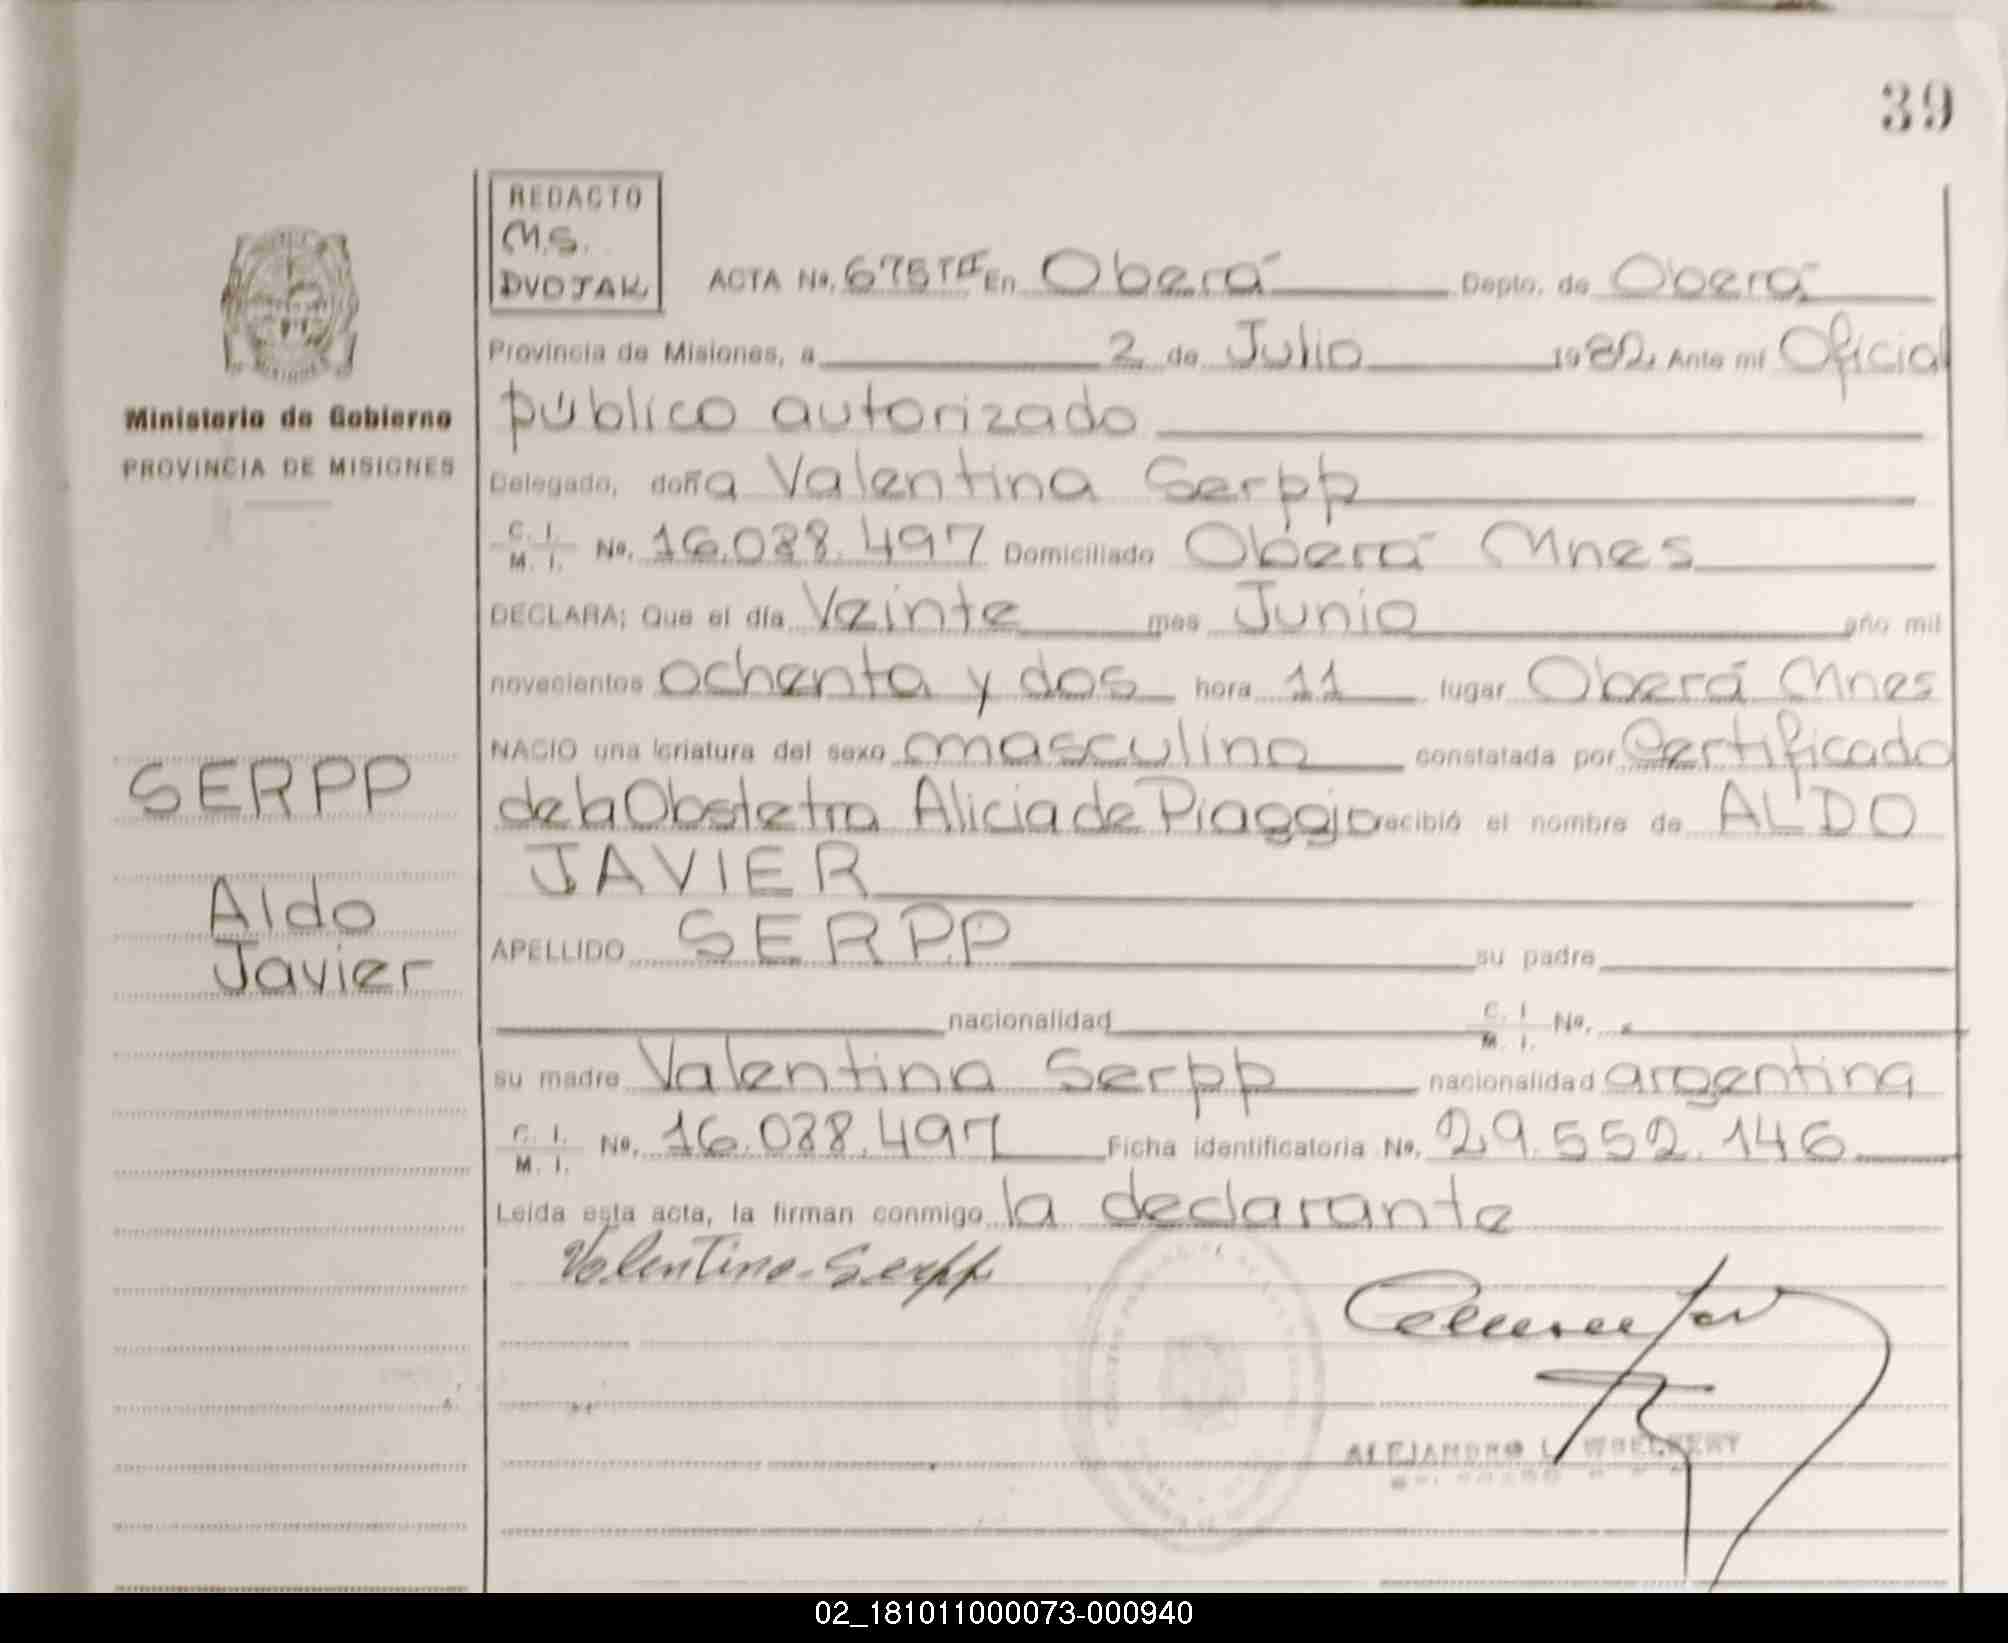 39
REDACTO
M.S.
DVOJAK
ACTA No. 675 TII En Oberá Depto. de Oberá
Provincia de Misiones, a 2 de Julio 1982. Ante mí Oficial
público autorizado
Ministerio de Gobierno
PROVINCIA DE MISIONES
Delegado, doña Valentina Serpp
C. I.
M. I. No. 16.038.497 Domiciliado Oberá Mnes
DECLARA; Que el día Veinte mes Junio año mil
novecientos ochenta y dos hora 11 lugar Oberá Mnes
NACIO una criatura del sexo masculino constatada por Certificado
de la Obstetra Alicia de Piaggio recibió el nombre de ALDO
JAVIER
SERPP
Aldo
Javier
APELLIDO SERPP su padre
nacionalidad C. I.
M. I. No.
su madre Valentina Serpp nacionalidad argentina
C. I.
M. I. No. 16.038.497 Ficha identificatoria No. 29.552.146
Leída esta acta, la firman conmigo la declarante
Valentina Serpp
ALEJANDRO L. WOELKERT
02_181011000073-000940